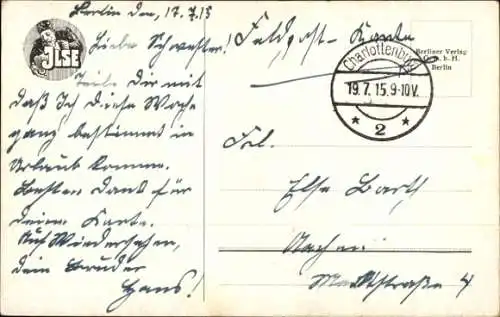 Berlin den, 17.7.15
Liebe Schwester!
Teile Dir mit
daß Ich diese Woche
ganz bestimmt in
Urlaub komme.
Besten Dank für
deine Karte.
Auf Wiedersehen,
dein Bruder
Hans!
JLSE
Feldpost-Karte
Berliner Verlag
b.H.
Berlin
Charlottenburg
19.7.15.9-10V.
* 2 *
Frl.
Else Barth
Aachen
Marktstraße 4